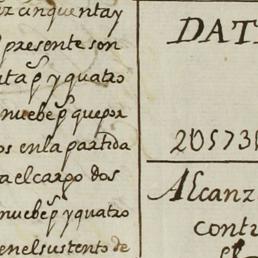 z cinquenta y
presente son
ta p̲s y quatro
nuebe p̲s que por
os en la partida
a el cargo dos
nuebe p̲s y quatro
en el sustento de
DAT
205731
Alcanz
contr